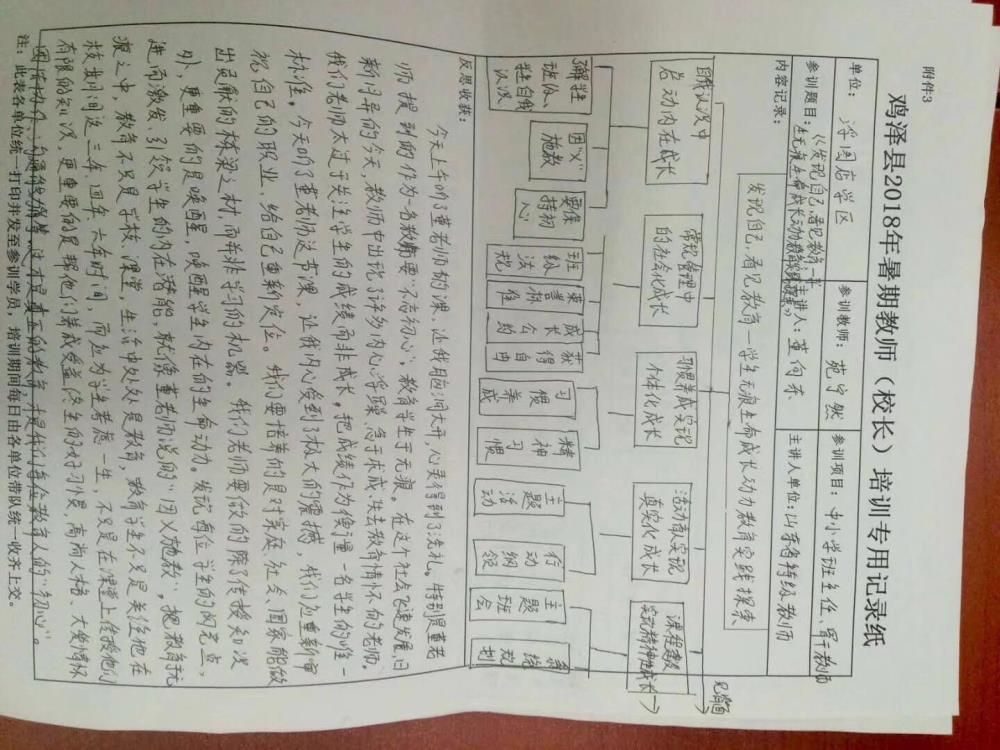 附件3
鸡泽县2018年暑期教师（校长）培训专用记录纸
单位：浮图店学区 参训教师：苑宁然 参训项目：中小学班主任、骨干教师
参训题目：《发现自己，看见教育—学生无痕生命成长动力教育实践探索》 主讲人：董向东 主讲人单位：山东省特级教师
内容记录：
发现自己，看见教育—学生无痕生命成长动力教育实践探索
见背面
自我认识中启动内在成长
常规管理中的社会化成长
习惯养成实现个体化成长
活动育人实现真实化成长
课程建设实现精神性成长
了解班主任、班队、自我认识
因“义”施教
要保持初心
班级法规
荣誉标准
成长公约
获得自由
习惯养成
精神习惯
主题活动
行动纲领
主题班会
系统规划
反思收获：
今天上午听了董老师的课，让我脑洞大开，心灵得到了洗礼。特别是董老
师提到的作为一名教师要“不忘初心”，教育学生于无痕。在这个社会飞速发展，日
新月异的今天，教师中出现了许多内心浮躁，急于求成，失去教育情怀的老师。
我们老师太过于关注学生的成绩而非成长。把成绩作为衡量一名学生的唯一
标准。今天听了董老师这节课，让我内心受到了极大的震撼，我们应重新审
视自己的职业，给自己重新定位。我们要培养的是对家庭、社会、国家能做
出贡献的栋梁之材，而并非学习的机器。我们老师要做的除了传授知识
外，更重要的是唤醒，唤醒学生内在的生命动力。发现每位学生的闪光点，
进而激发、引领学生的内在潜能，就像董老师说的“因义施教”，把教育于无
痕之中，教育不只是学校，课堂，生活中处处是教育，教育学生不只是关注他在
校期间这三年四年六年时间，而应为学生考虑一生，不只是在课堂上传授他们
有限的知识，更重要的是帮他们养成受益终生的好习惯，高尚人格、大爱情怀
团结协作、沟通的力量等。这才是真正的教育，才是我们每位教育人的“初心”。
注：此表各单位统一打印并发至参训学员，培训期间每日由各单位带队统一收齐上交。